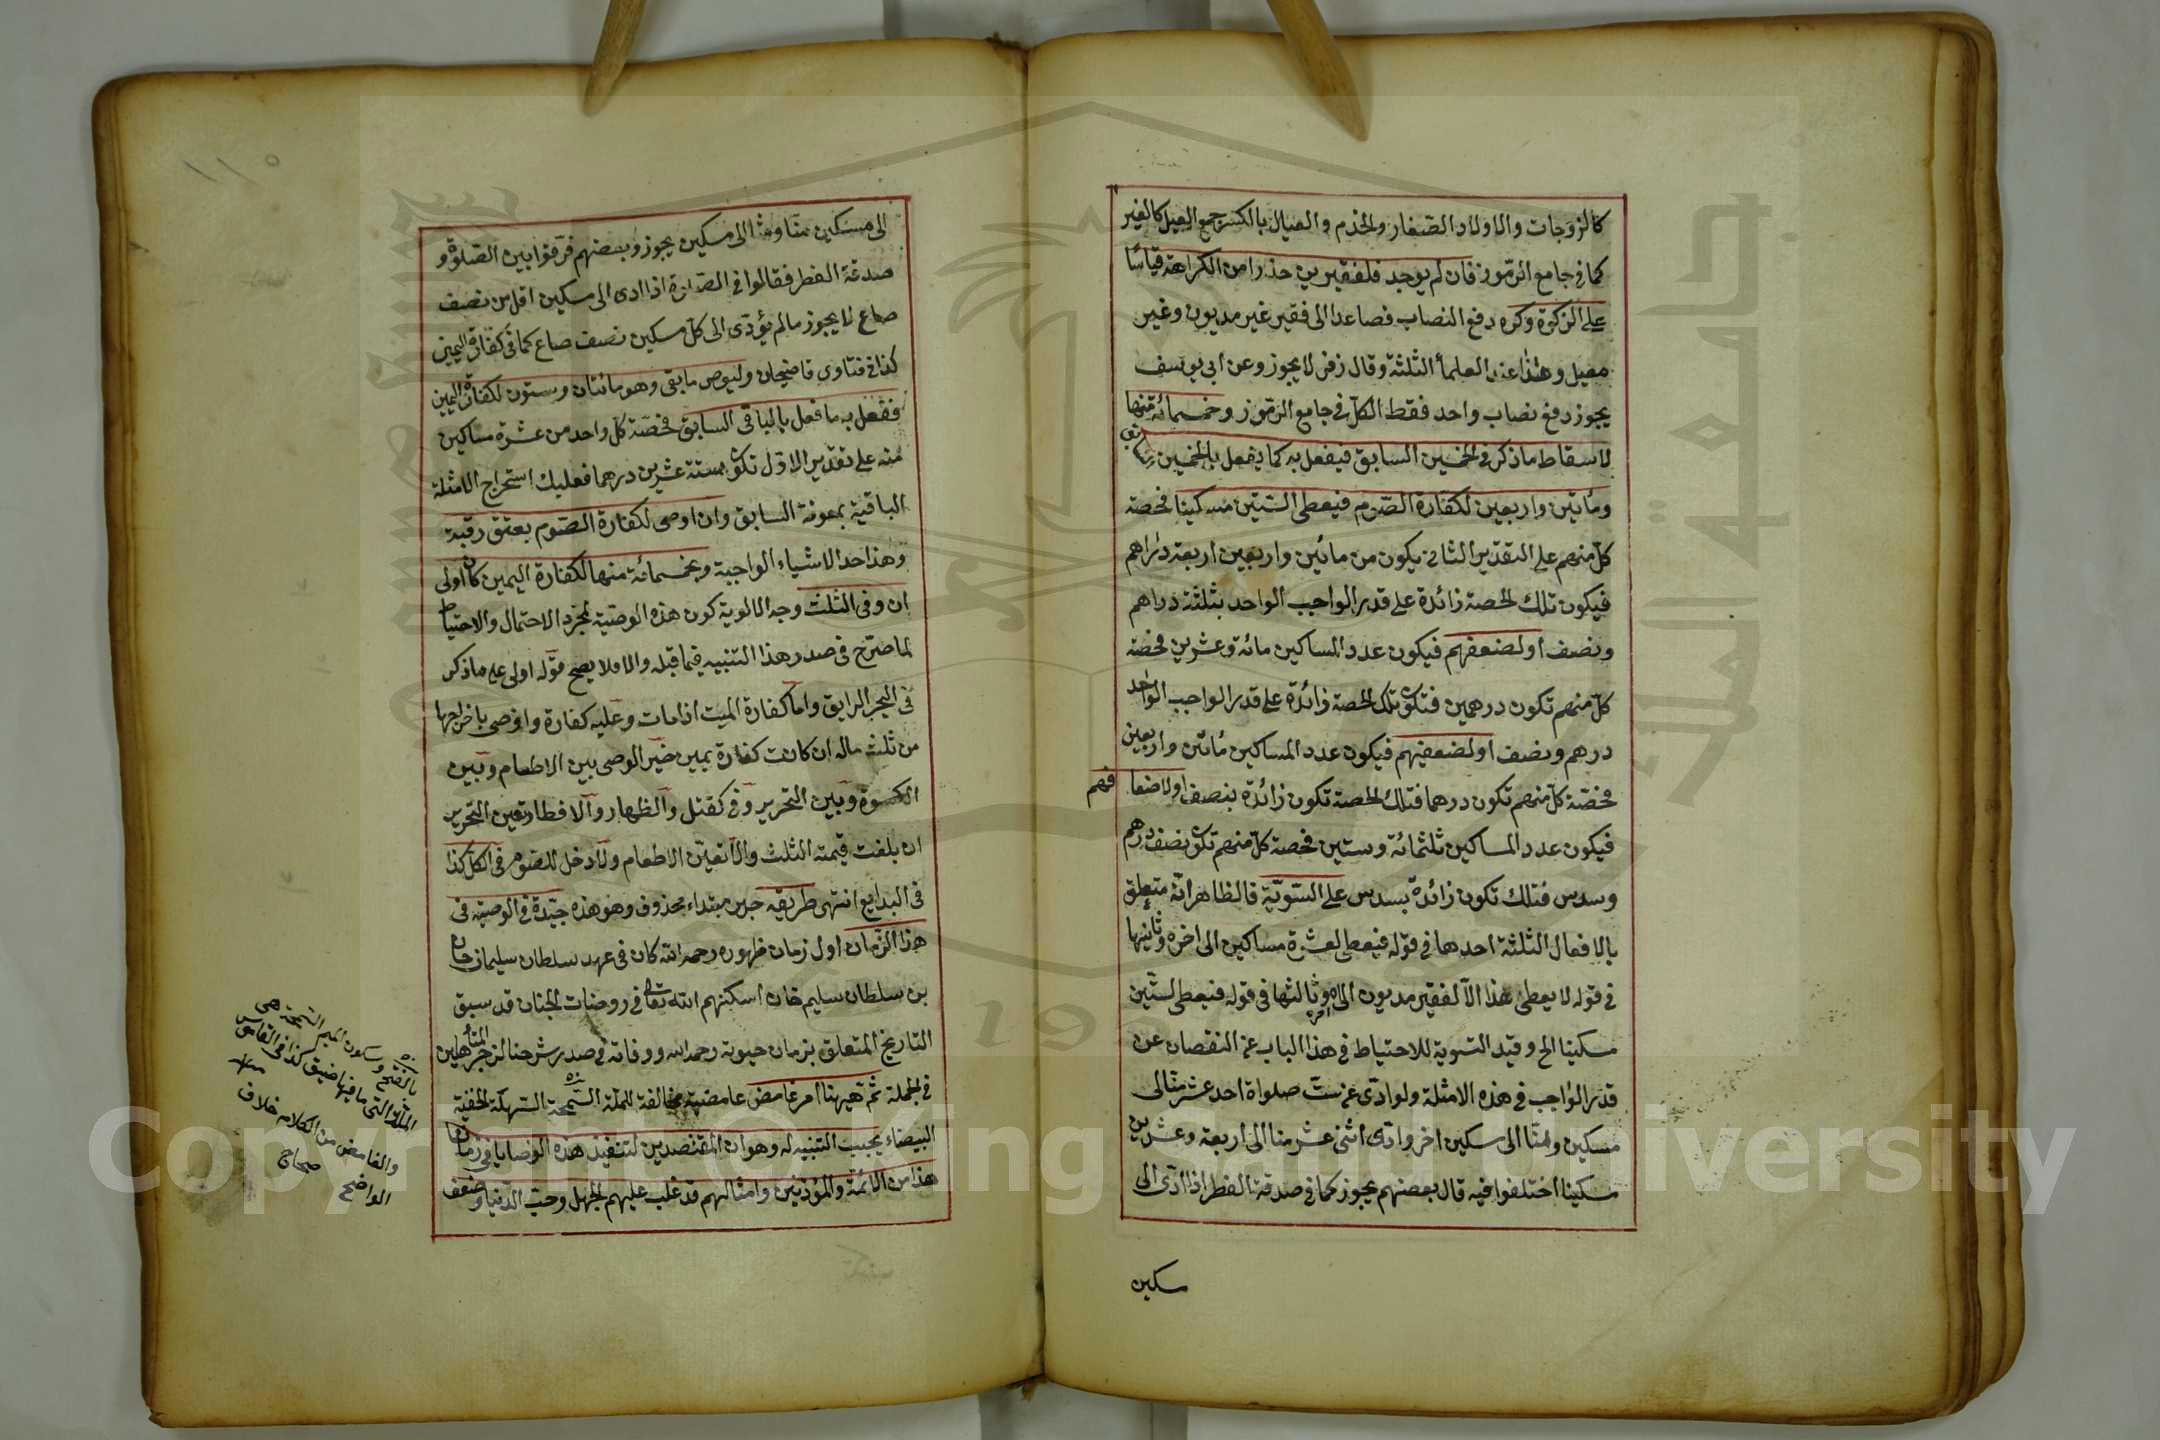 كالزوجات والاولاد الصغار والخدم والعيال بالكسر جمع العيل كالغير
كما في جامع الرموز فان لم يوجد فلفقيرين حذرا من الكراهة قياسًا
على الزكوة وكره دفع النصاب فصاعدا الى فقير غير مديون وغير
معيل وهذا عند العلمأ الثلثة وقال زفر لا يجوز وعن ابي يوسف
يجوز دفع نصاب واحد فقط الكل في جامع الرموز وخمسمائة منها
لاسقاط ما ذكر في الخمسين السابق فيفعل به كما يفعل بالخمسين
ومأتين واربعين لكفارة الصوم فيعطى الستين مسكينا فحصة
كل منهم على التقدير الثاني يكون من مائتين واربعين اربعة دراهم
فيكون تلك الحصة زائدة على قدر الواجب الواحد بثلثة دراهم
ونصف او لضعفهم فيكون عدد المساكين مائة وعشرين فحصة
كل منهم تكون درهمين فتكون تلك الحصة زائدة على قدر الواجب الواحد
درهم ونصف او لضعفيهم فيكون عدد المساكين مأتين واربعين
فحصة كل منهم تكون درهما فتلك الحصة تكون زائدة بنصف او لاضعا
فهم
فيكون عدد المساكين ثلثمائة وستين فحصة كل منهم تكون نصف درهم
وسدس فتلك تكون زائدة بسدس على السوية فالظاهر انه متعلق
بالافعال الثلثة احدها في قوله فيعطى لعشرة مساكين الى اخره وثانيها
في قوله لا يعطى هذا الا لفقير مديون الى اخره وثالثها في قوله فيعطى لستين
مسكينا الخ وقيد التسوية للاحتياط في هذا الباب عن النقصان عن
قدر الواجب في هذه الامثلة ولو ادى عن ست صلواة احد عشر منا الى
مسكين ومنا الى مسكين اخر وادى اثنى عشر منا الى اربعة وعشرين
مسكينا اختلفوا فيه قال بعضهم يجوز كما في صدقة الفطر اذا ادى الى
مسكين
الى مسكين منا ومنا الى مسكين يجوز وبعضهم فرقوا بين الصلوة و
صدقة الفطر فقالوا في الصلوة اذا ادى الى مسكين اقل من نصف
صاع لا يجوز ما لم يؤدى الى كل مسكين نصف صاع كما في كفارة اليمين
كذا في فتاوى قاضيخان وليوص ما بقى وهو مائتان وستون لكفارة اليمين
ففعل به ما فعل بالباقي السابق فحصة كل واحد من عشرة مساكين
منه على تقدير الاول تكون ستة عشرين درهما فعليك استخراج الامثلة
الباقية بمعونة السابق وان اوصى لكفارة الصوم بعتق رقبة
وهذا احد الاشياء الواجبة وبخمسمائة منها لكفارة اليمين كان اولى
ان وفى الثلث وجه الالوية كون هذه الوصية لمجرد الاحتمال والاحتياط
لما صرح في صدر هذا التنبيه فيما قبله والا فلا يصح قوله اولى على ما ذكر
في البحر الرايق واما كفارة الميت اذا مات وعليه كفارة واوصى باخراجها
من ثلث ماله ان كانت كفارة يمين خير الوصى بين الاطعام وبين
الكسوة وبين التحرير وفي كقتل والظهار والافطار تعين التحرير
ان بلغت قيمته الثلث والا تعين الاطعام ولا دخل للصوم في الكل كذا
في البدايع انتهى طريقه خبر مبتداء محذوف وهو هذه جيدة في الوصية في
هذا الزمان اول زمان ظهوره رحمه الله كان في عهد سلطان سليمان خان
بن سلطان سليم خان اسكنهم الله تعالى في روضات الجنان قد سبق
التاريخ المتعلق بزمان حيوته رحمه الله ووفاته في صدر شرحنا لزجر المتأهلين
في الجملة ثم ههنا امر غامض غامضية مخالفة للملة السمحة السهلة الحنفية
البيضاء يجب التنبيه له وهو ان المقتصدين لتنفيذ هذه الوصايا في زمان
هذا من الائمة والمؤذنين وامثالهم قد غلب عليهم الجهل وحب الدنيا وضعف
بالفتح وسكون الميم السمحة هى
الملة التى ما فيها ضيق كذا في القاموس
والغامض من الكلام خلاف
الواضح صحاح